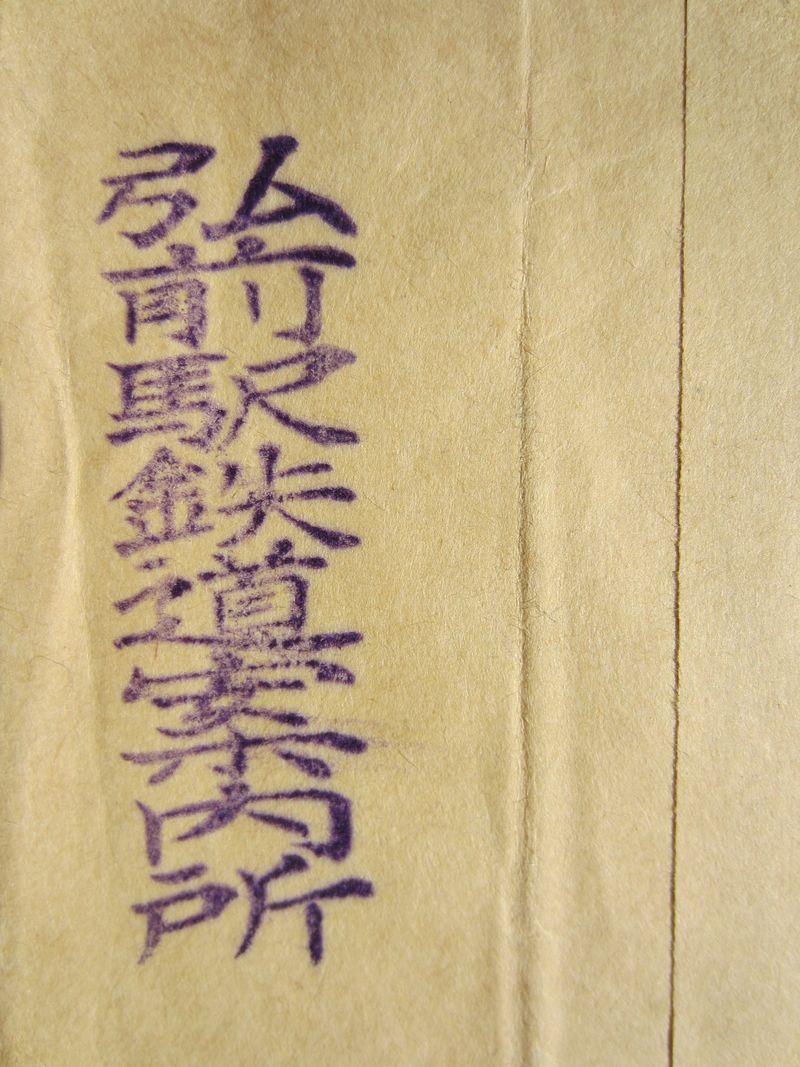 弘前駅鉄道案内所